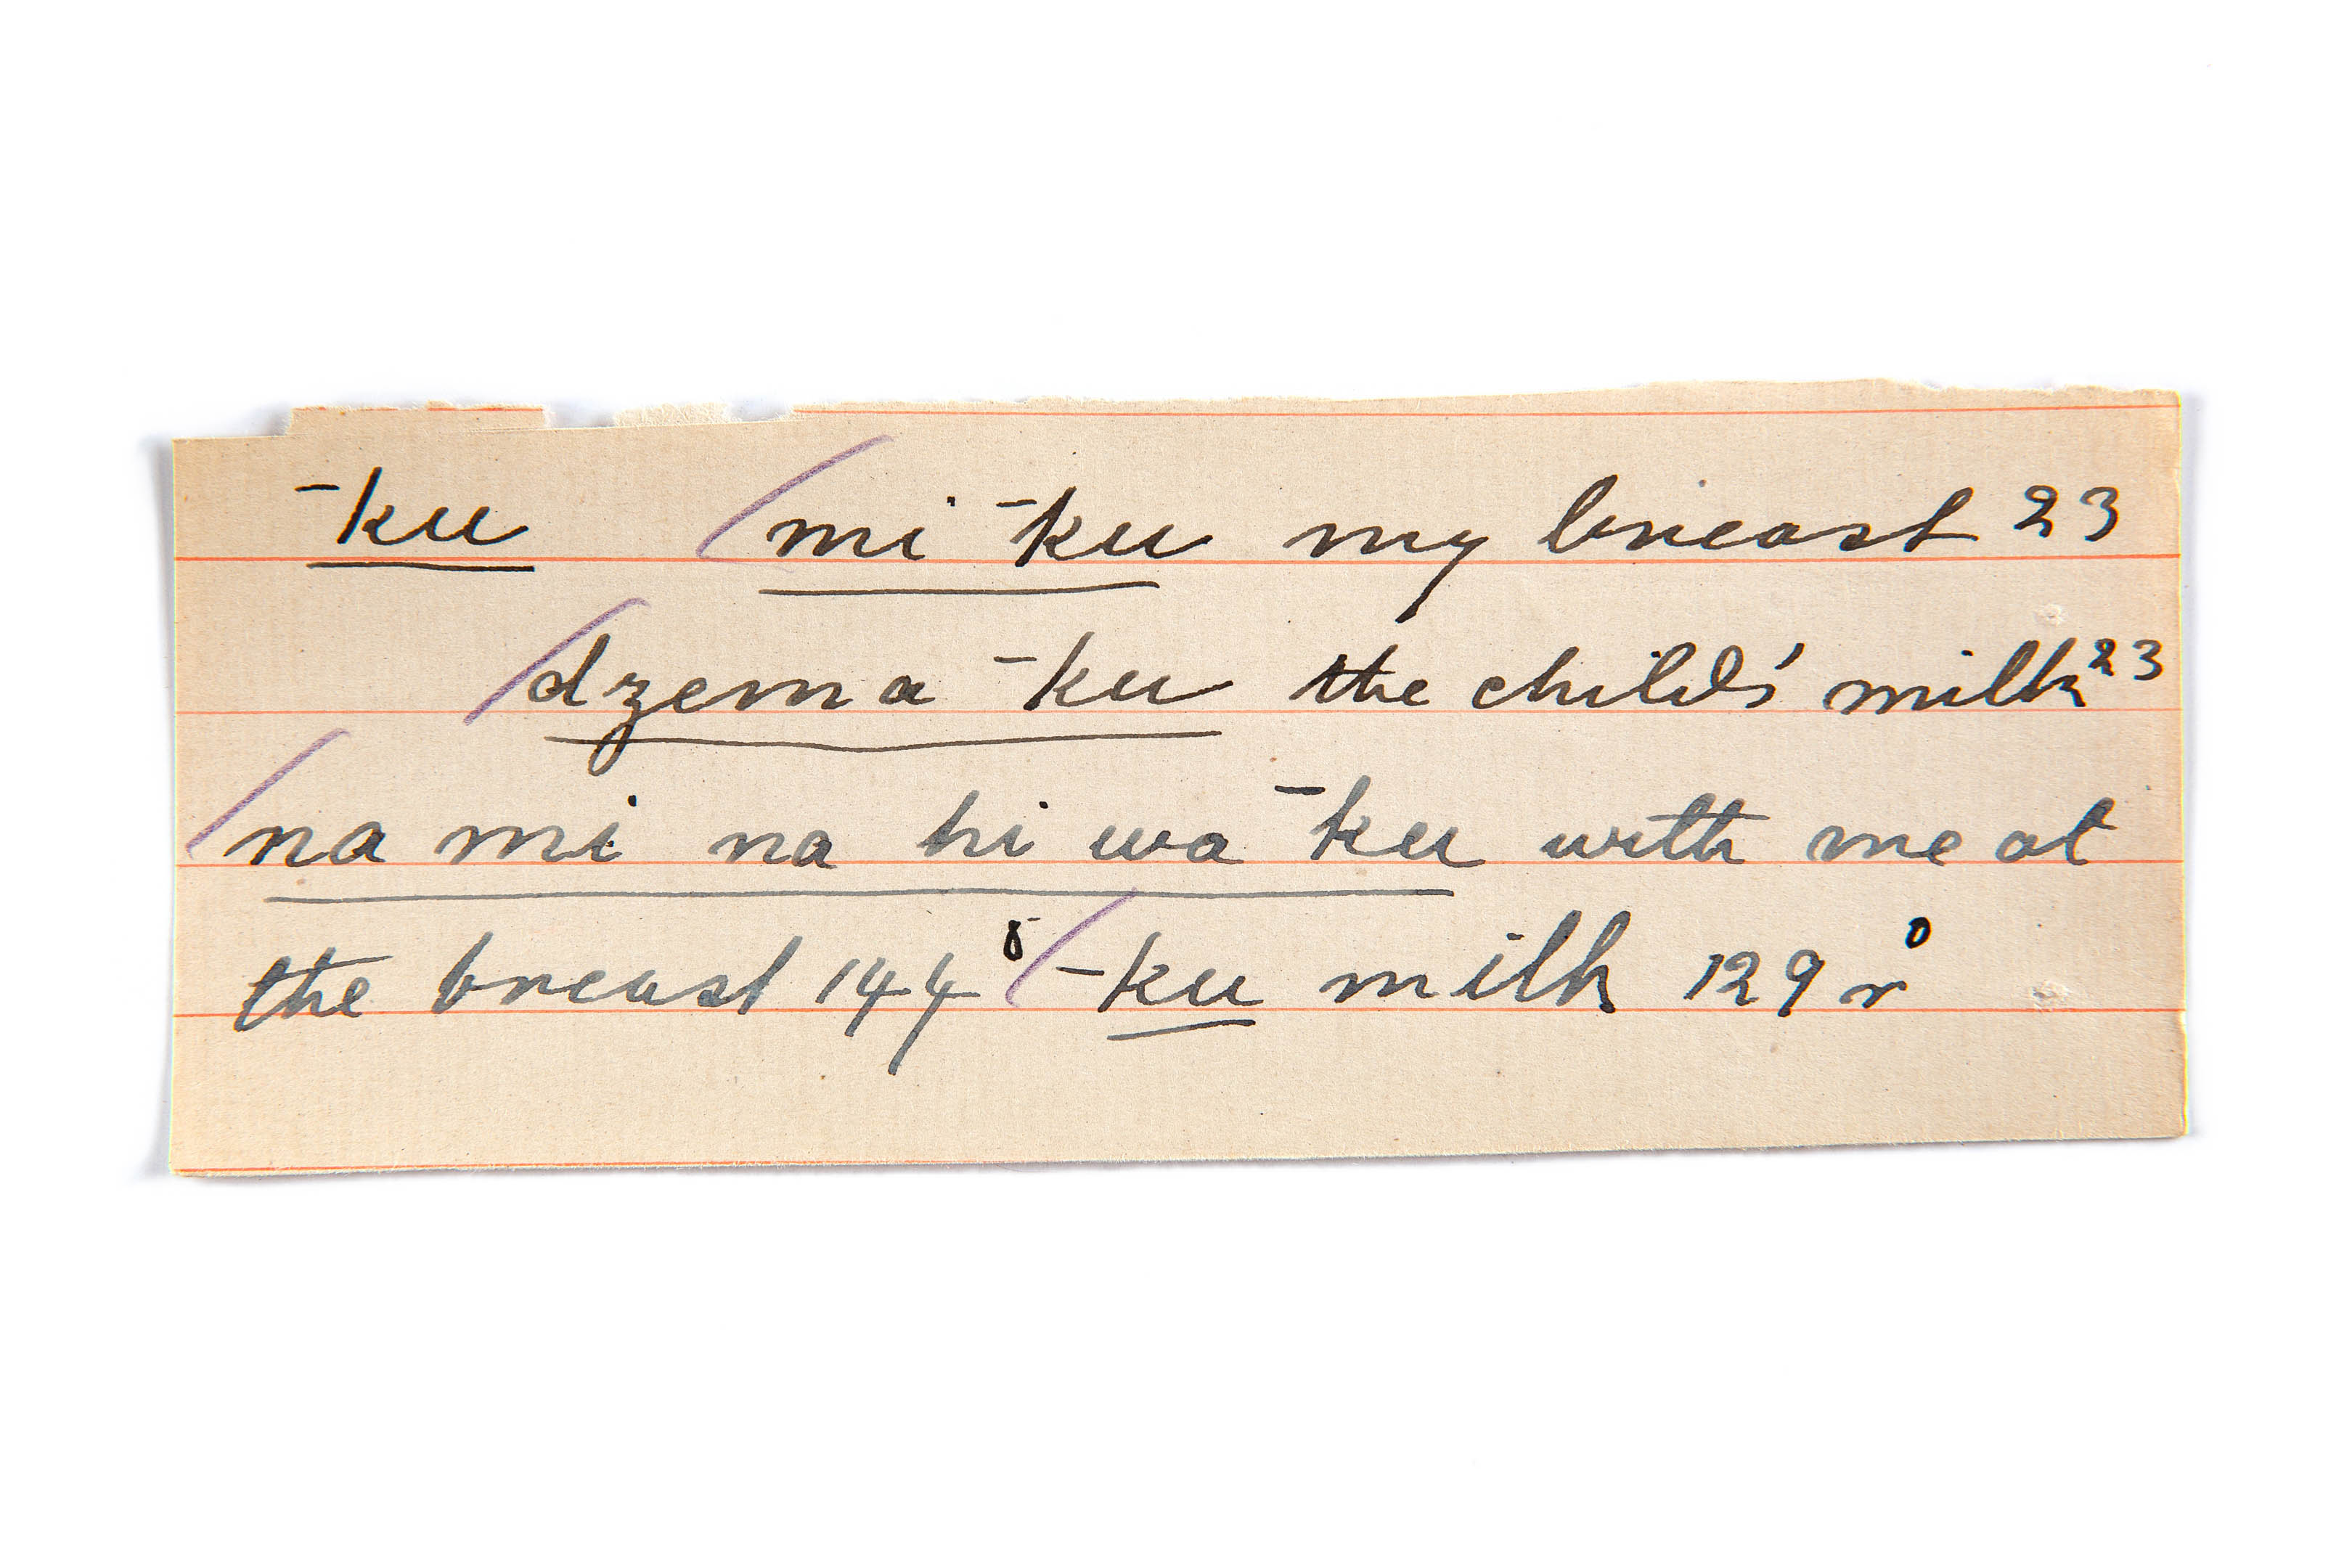 ¯ku mi ¯ku my breast 23
dzema ¯ku the child's milk 23
na mi na hi wa ¯ku with me at
the breast 144 ¯ku milk 129 r⁰